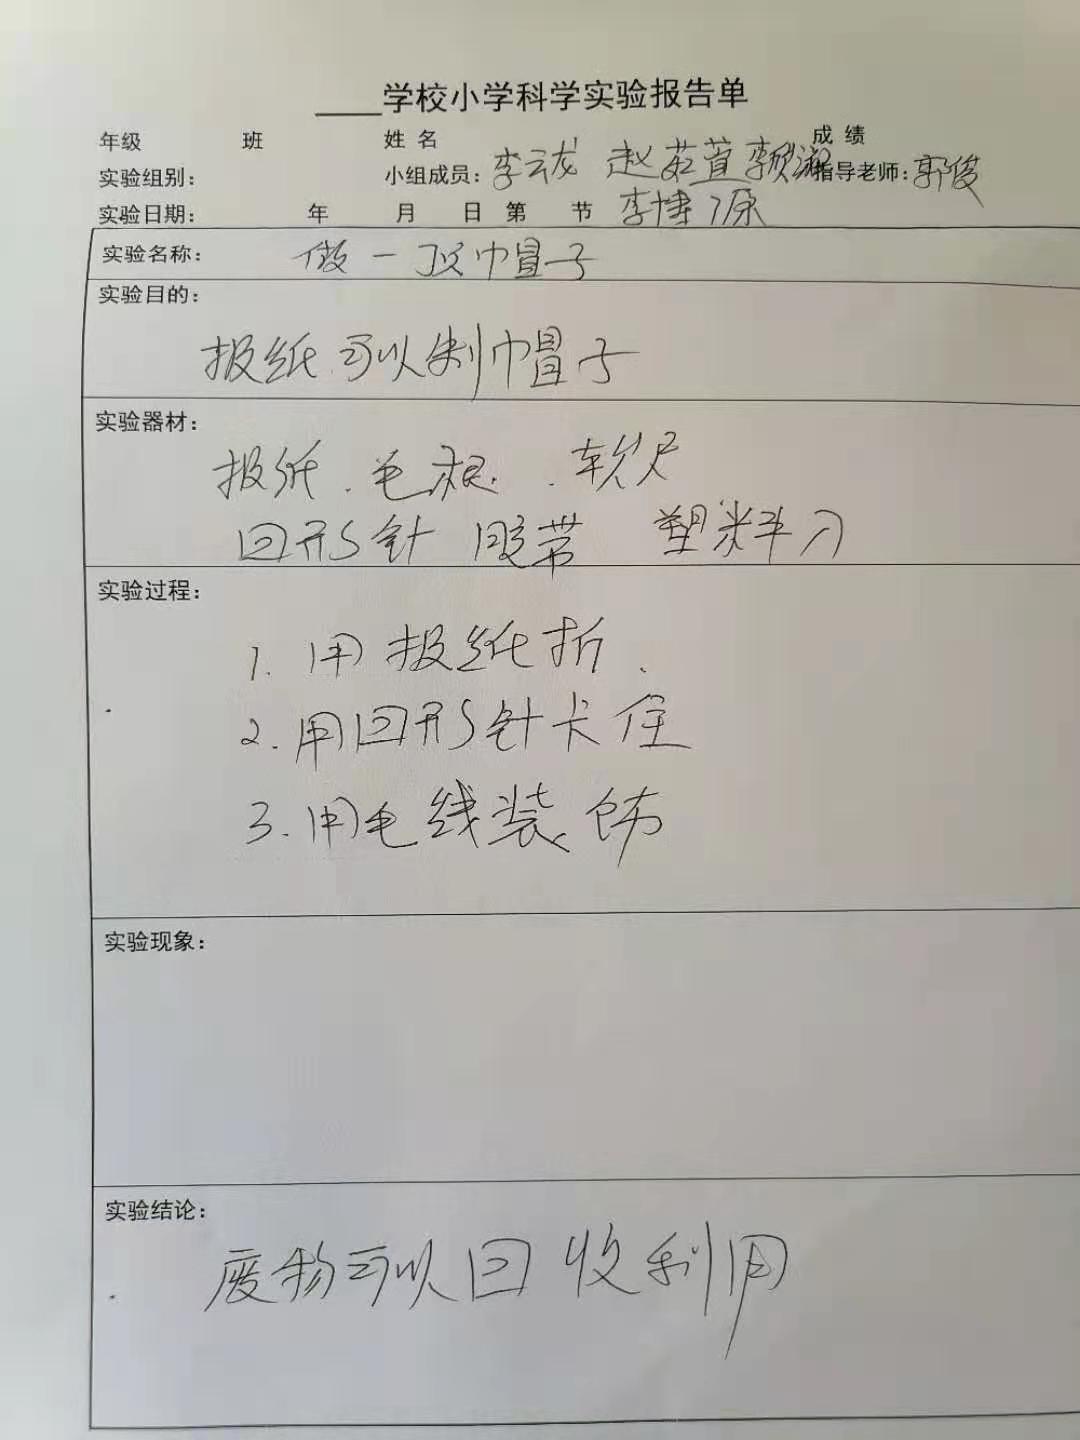 ____学校小学科学实验报告单
年级 班 姓名 成绩
实验组别： 小组成员：李云龙 赵茹萱 指导老师：郭俊
实验日期： 年 月 日 第 节 李博源
实验名称： 做一顶帽子
实验目的：
报纸可以制帽子
实验器材：
报纸、毛根、软尺
回形针 胶带 塑料刀
实验过程：
1. 用报纸折.
2. 用回形针卡住
3. 用毛线装饰
实验现象：
实验结论：
废物可以回收利用